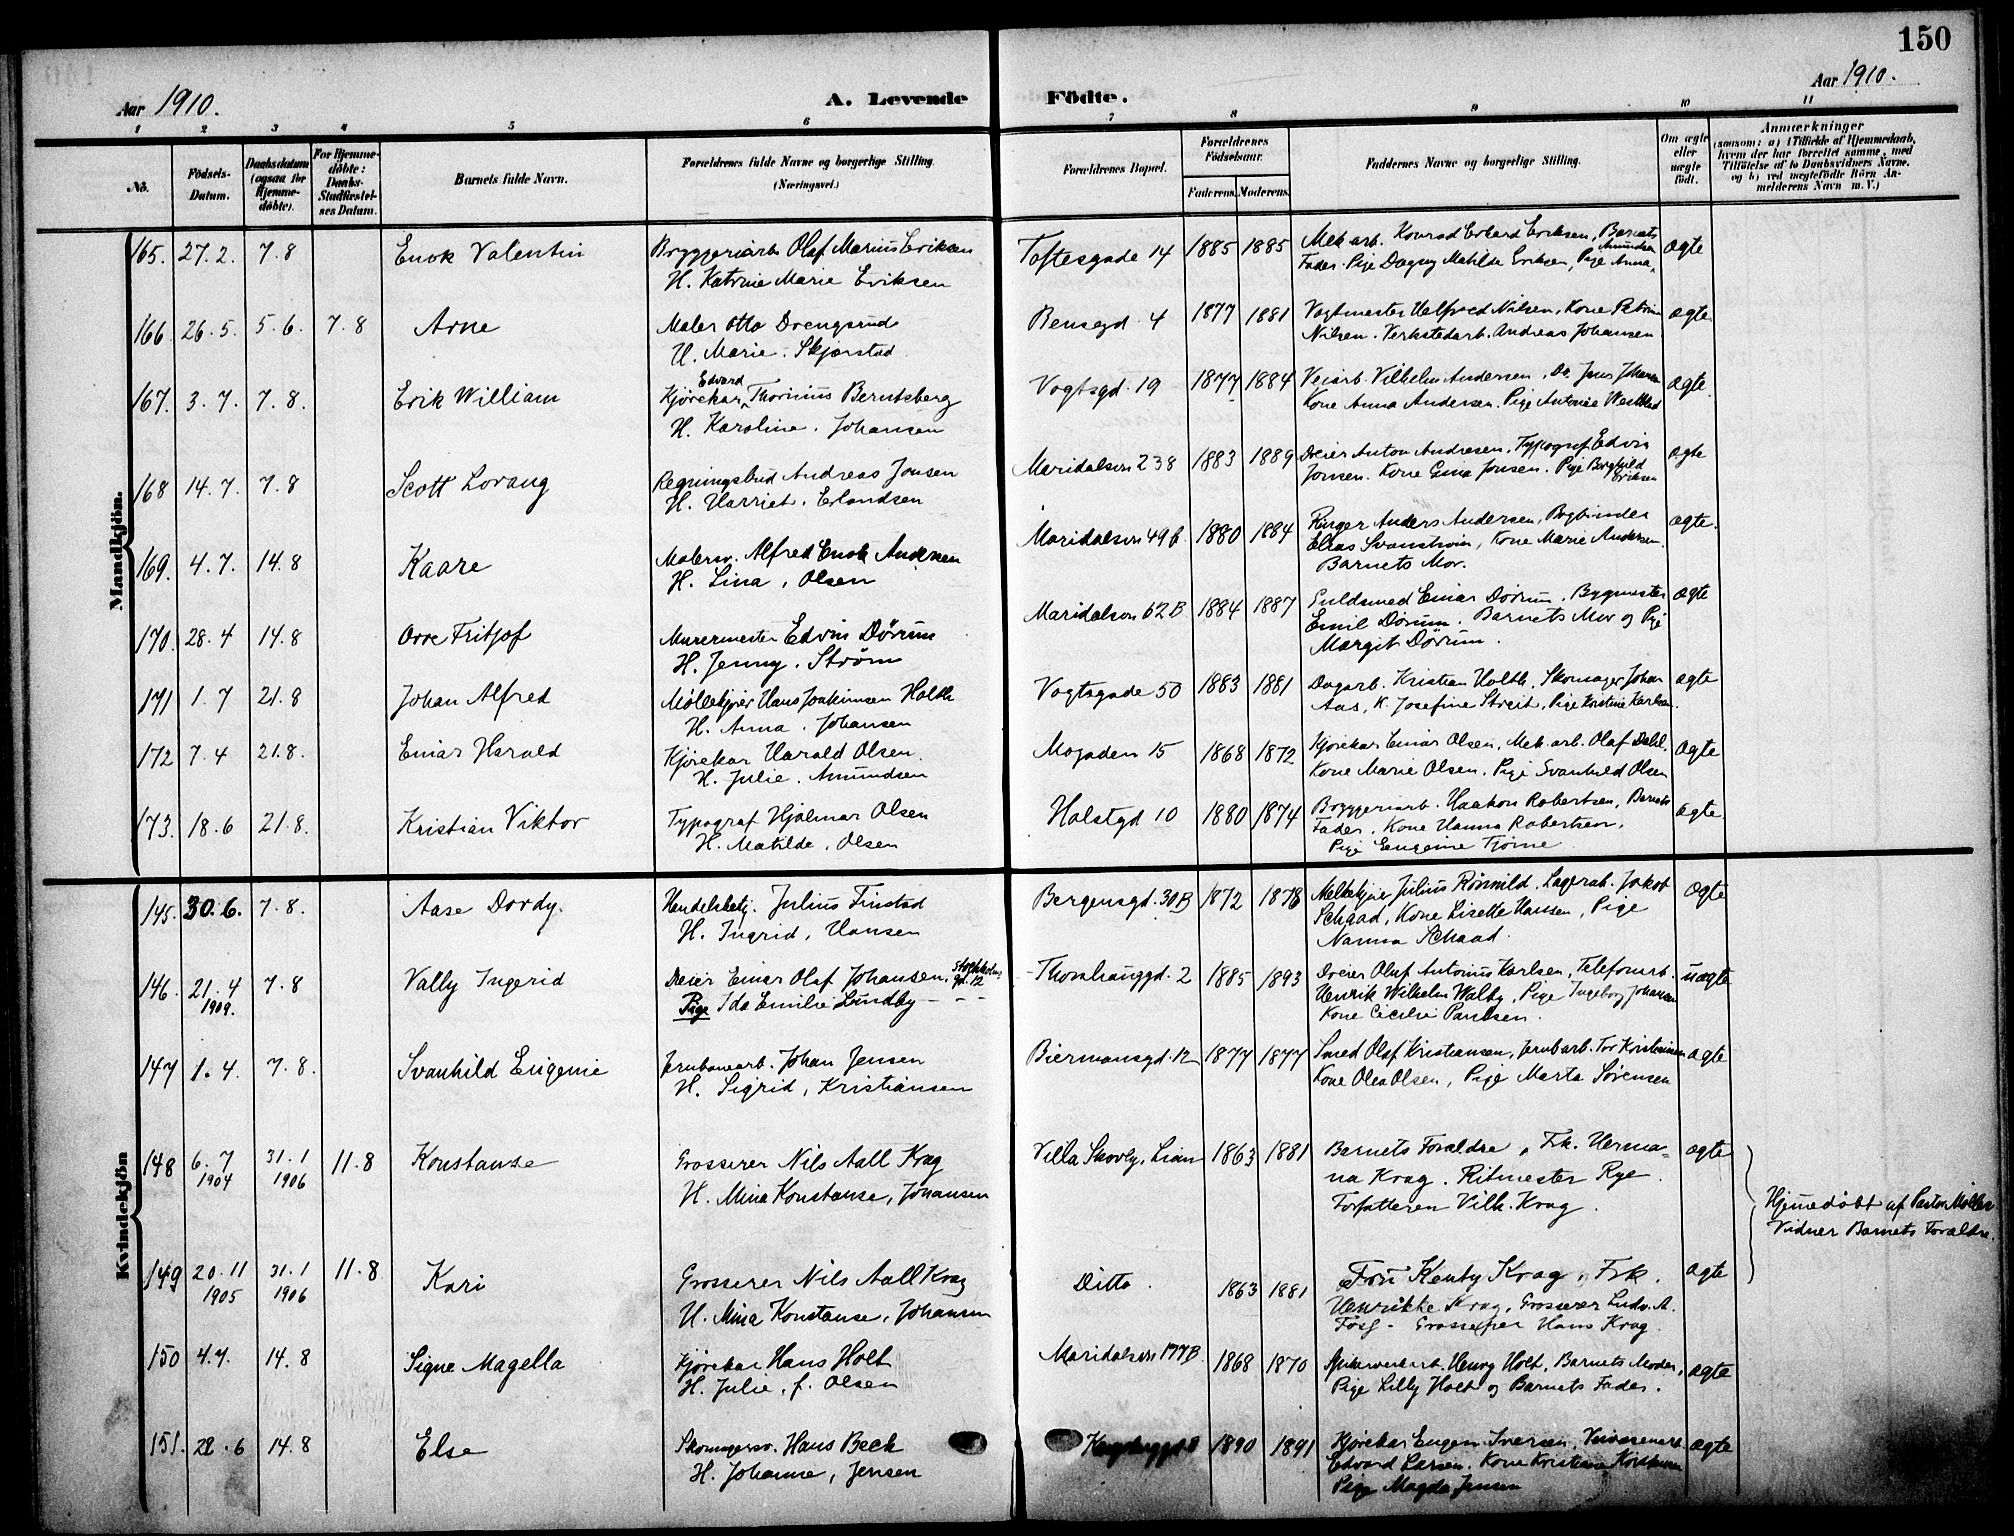 150
Aar 1910.
A. Levende Födte.
Aar 1910.
1 2 3 4 5 6 7 8 9 10 11
No.
Födsels-Datum.
Daabsdatum (ogsaa for Hjemme-döbte).
For Hjemme-döbte: Daabs-Stadfæstel-ses Datum.
Barnets fulde Navn.
Forældrenes fulde Navne og borgerlige Stilling. (Næringsvei.)
Forældrenes Bopæl.
Forældrenes Födselsaar.
Faderens. Moderens.
Faddernes Navne og borgerlige Stilling.
Om ægte eller uægte födt.
Anmærkninger
(saasom: a) i Tilfælde af Hjemmedaab, hvem der har forrettet samme, med Tilföielse af to Daabsvidners Navne. og b) ved uægtefödte Börn An-melderens Navn m. V.)
Mandkjön.
165. 27.2. 7.8 Enok Valentin Bryggeriarb Olaf Marius Eriksen Toftesgade 14 1885 1885 Mek arb. Konrad Erhard Eriksen, Barnets ægte
H. Katrine Marie Eriksen Fader. Pige Dagny Matilde Eriksen, Pige Anna Amundsen
166 26.5. 5.6. 7.8 Arne Maler Otto Drengsrud Bensegd. 4 1877 1881 Vogtmester Halfred Nilsen, Kone Petrine ægte
H. Marie. Skjørstad Nilsen. Verkstedarb. Andreas Johansen
167. 3.7. 7.8. Erik William Kjørekar Edvard Thorinius Berntsberg Vogtsgd. 19 1877 1884 Veiarb. Vilhelm Andersen, Do. Jens Johansen ægte.
H. Karoline. Johansen Kone Anna Andersen. Pige Antonie
168 14.7. 7.8 Scott Lorang Regningsbud Andreas Jonsen Maridalsvn 238 1883 1889 Dreier Anton Andresen, Typograf Edvin ægte
H. Harriet. Erlandsen Jonsen. Kone Gina Jonsen. Pige Borghild Eriksen
169. 4.7. 14.8 Kaare Malersv. Alfred Enok Andersen Maridalsvn 49b. 1880 1884 Ringer Anders Andersen, Bogbinder ægte.
H. Lina, Olsen Elias Svanstrøm, Kone Marie Andersen.
Barnets Mor.
170. 28.4 14.8 Orre Fritjof Murermester Edvin Dørum Maridalsvn 62B 1884 1887 Guldsmed Einar Dørum. Bygmester ægte
H. Jenny. Strøm Emil Dørum. Barnets Mor og Pige
Margit Dørum.
171 1.7 21.8 Johan Alfred Møllekjører Hans Joakimsen Holth Vogtsgade 50 1883 1881 Dagarb. Kristian Holth, Skomager Johan ægte
H. Anna. Johansen Aas, K. Josefine Streit, Pige Kirstine Karlsen.
172 7.4 21.8. Einar Harald Kjørekar Harald Olsen. Mogaden 15 1868 1872 Kjørekar Einar Olsen, Mek. arb. Olaf Dahl, ægte
H. Julie. Amundsen Kone Marie Olsen. Pige Svanhild Olsen
173. 18.6 21.8. Kristian Viktor Typograf Hjalmar Olsen Holstgd 10 1880 1874 Bryggeriarb. Haakon Robertsen, Barnets ægte
H. Matilde. Olsen Fader, Kone Hanna Robertsen.
Pige Eugenie Tjøme
Kvindekjön
145. 30.6. 7.8. Aase Dordy. Handelsbetj. Julius Finstad Bergensgd. 30B 1872 1878 Melkekjører Julius Rønnild. Lagerarb. Jakob ægte
H. Ingrid, Hansen Schaad, Kone Lisette Hansen, Pige
Nanna Schaad.
146. 21.4 1909. 7.8 Vally Ingerid Dreier Einar Olaf Johansen. Stockholmsgd. 12 Thorshauggd. 2 1885 1893 Dreier Olaf Antonius Karlsen, Telefonarb. uægte
Pige Ida Emilie Lundby - - - Henrik Wilhelm Walby, Pige Ingeborg Johansen
Kone Cecilie Paulsen.
147 1.4. 7.8. Svanhild Eugenie Jernbanearb. Johan Jensen Biermansgd. 12 1877 1877 Smed Olaf Kristiansen, Jernb arb. Tor Kristiansen ægte
H. Sigrid, Kristiansen Kone Olea Olsen, Pige Marta Sørensen
148 6.7 1904 31.1 1906 11.8 Konstanse Grosserer Nils Aall Krag Villa Skovly, Lian 1863 1881 Barnets Foraldre, Frk. Herma- ægte
H. Mina Konstanse, Johansen na Krag. Ritmester Rye.
Forfatteren Vilh. Krag.
Hjemmedøbt af Pastor Møller
Vidner Barnets Foraldre.
149 20.11 1905 31.1 1906 11.8 Kari Grosserer Nils Aall Krag Ditto. 1863 1881 Fru Kenty Krag, Frk. ægte
H. Mina Konstanse, Johansen Henrikke Krag, Grosserer Ludv. A.
Grosserer Hans Krag.
150 4.7. 14.8 Signe Magella Kjørekar Hans Holt Maridalsvn 177B 1868 1870 Henry Holt, Barnets Moder, ægte
H. Julie, f. Olsen Pige Lilly Holt og Barnets Fader.
151. 28.6 14.8 Else Skomagersv. Hans Beck 1890 1891 Kjørekar Eugen Iversen, ægte
H. Johanne, Jensen Edvard Larsen. Kone Kristiane
Pige Magda Jensen